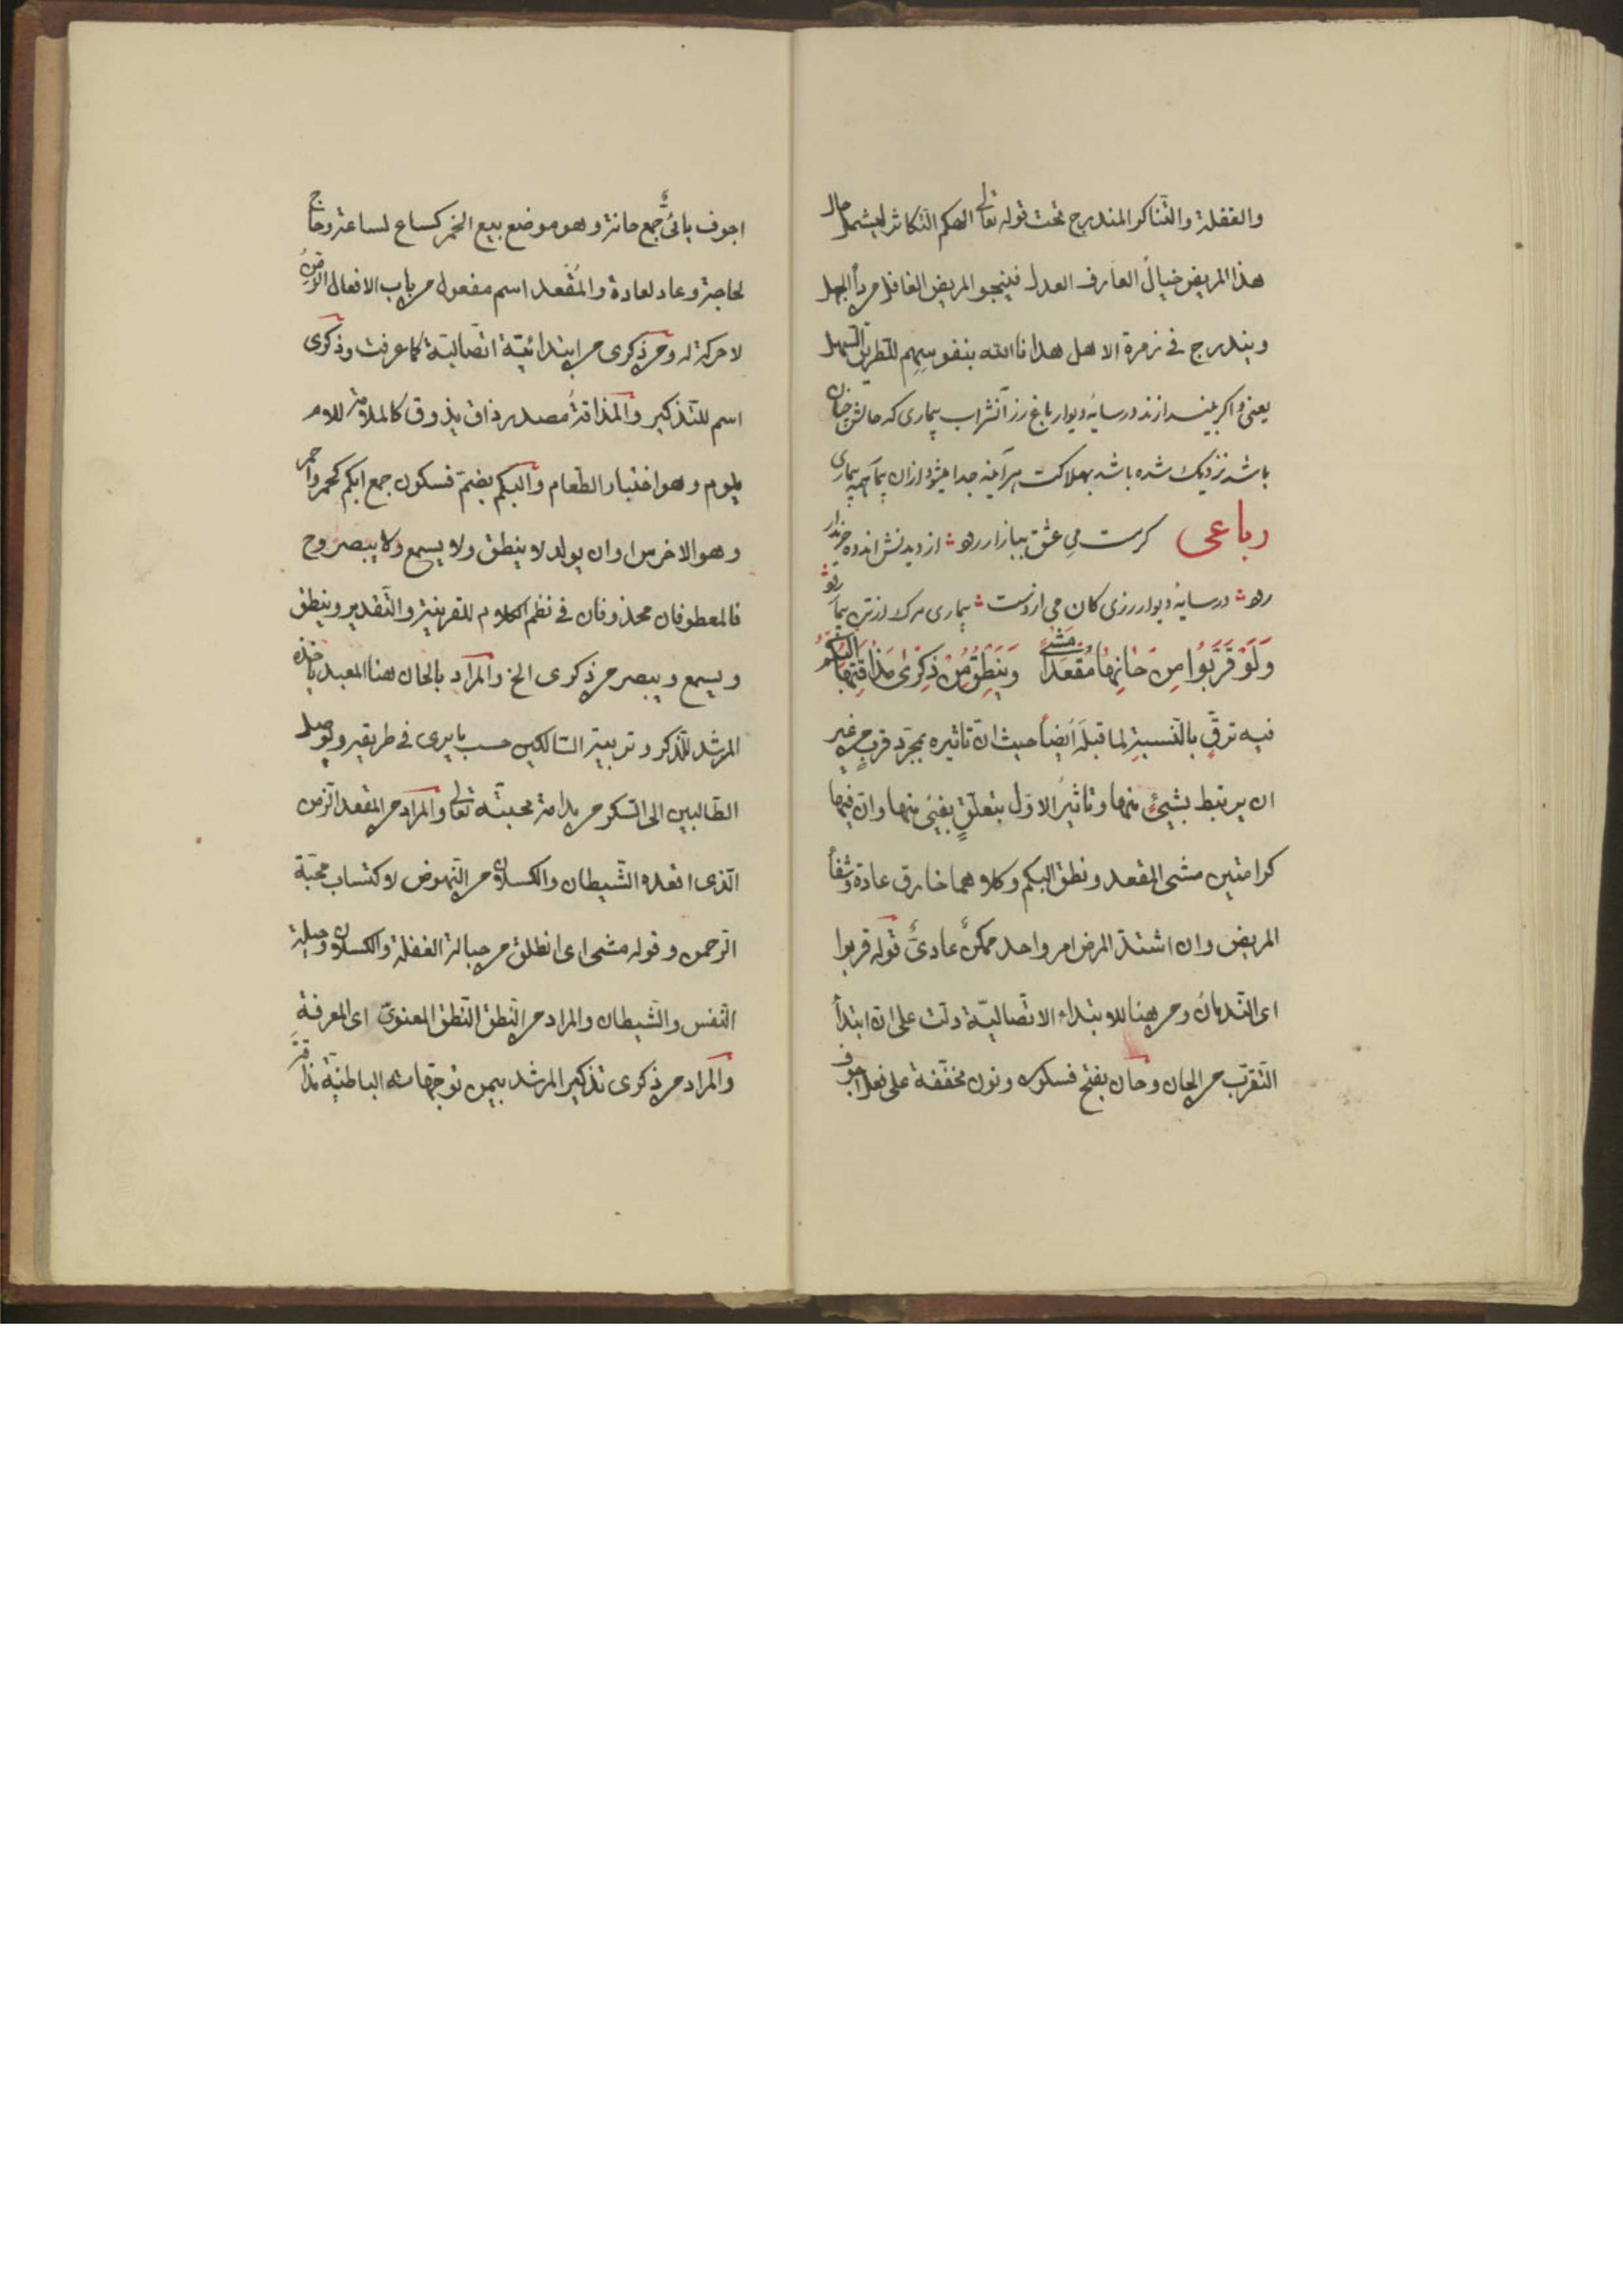 والغفلة والتناكر المندرج تحت قوله تعالى الهيكم التكاثر ليشمل حال
هذا المريض خيال العارف العدل فينجو المريض الغافل من داء الجهل
ويندرج فى زمرة الاهل هدانا الله بنفوسهم للطريق السهل
يعنى واكر بيندازند در سايه ديوار باغ رز آنشراب بيمارى كه حالش چنان
باشد نزديك شده باشد بهلاكت هرآينه جدا ميشود ازان بيمار همه بيمارى
رباعى كرست مى عشق ببازار رود ؞ از ديدنش اندوه خريدار
رود ؞ در سايه ديوار رزى كان مى ازوست ؞ بيمارى مرك از تن بيمار رود
وَلَوْ قَرَّبُوا مِنْ حَانِهَا مُقْعَدًا مَشَى وَيَنْطِقُ مِنْ ذِكْرَى مَذَاقَتِهَا الْبُكْمُ
فيه ترقٍّ بالنسبة لما قبله ايضاً حيث ان تاثيره بمجرد قرب من غير
ان يرتبط بشيئ منها وتاثير الاول بتعلق بفيئ منها وان فيها
كرامتين مشى المقعد ونطق البكم وكلاهما خارق عادة وشفأ
المريض وان اشتد المرض امر واحد ممكن عادىٌّ قوله قربوا
اى الندمان ومن هنا للابتداء الاتصاليّة دلت على ان ابتدأ
التقرب من الحان وحان بفتح فسكون ونون مخففة على فعل اجوف
اجوف يائىٌّ جمع حانة وهو موضع بيع الخمر كساع لساعة وحاج
لحاجة وعاد لعادة والمُقْعد اسم مفعول من باب الافعال الزمِن
لا حركة له ومن ذكرى من ابتدائيّة اتصاليّة كما عرفت وذكرى
اسم للتذكير والمذاقةُ مصدر ذاق يذوق كالملامة للام
يلوم وهو اختبار الطعام والبكم بضمّ فسكون جمع ابكم كحمر واحمر
وهو الاخرس او ان يولد لا ينطق ولا يسمع ولا يبصر وح
فالمعطوفان محذوفان فى نظم الكلام للقرينة والتقدير وينطق
ويسمع ويبصر من ذكرى الخ والمراد بالحان هنا المعبد ياخذه
المرشد للذكر وتربية السالكين حسب ما يرى فى طريقه ويوصل
الطالبين الى السكر من مدامة محبته تعالى والمراد من المقعد الزمن
الذى اقعده الشيطان والكسلان من النهوض لاكتساب محبّة
الرحمن وقوله مشى اى انطلق من حبالة الغفلة والكسلان وحيلة
النفس والشيطان والمراد من النطق النطق المعنوىّ اى المعرفة
والمراد من ذكرى تذكير المرشد بيمن توجهاته الباطنيّة مذاقة